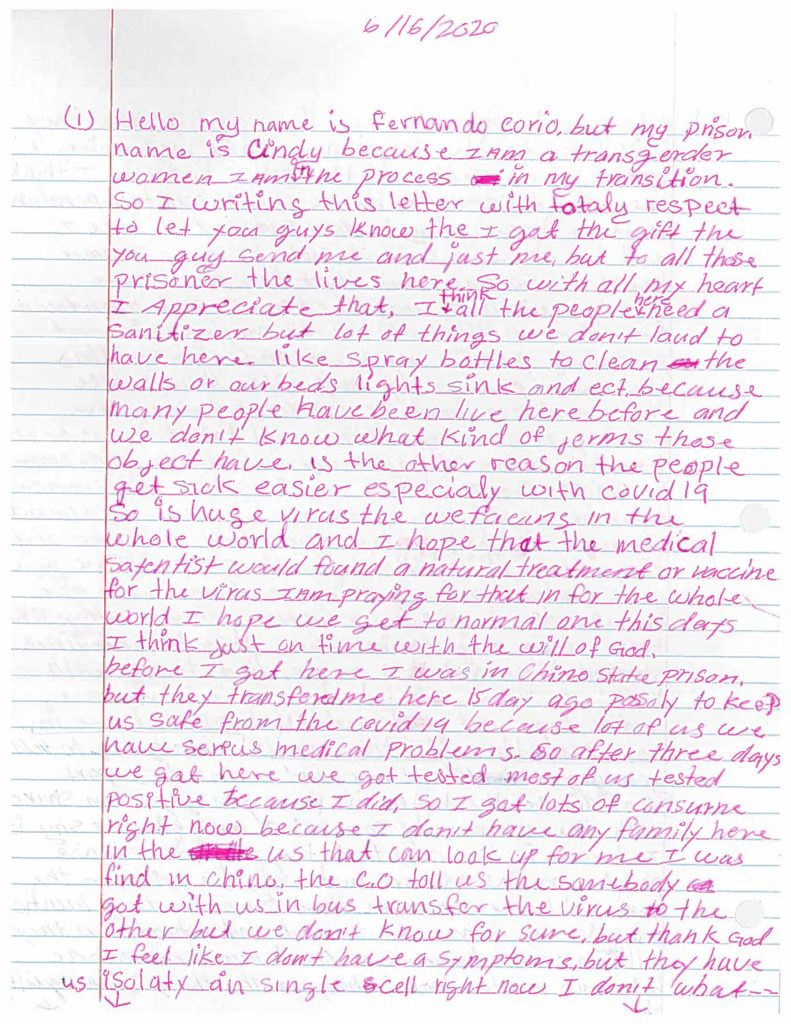 6/16/2020
(1) Hello my name is Fernando corio, but my prison
name is Cindy because I Am a transgerder
women I Am in the process in my transition.
So I writing this letter with totaly respect
to let you guys know the I got the gift the
you guy send me and just me, but to all those
prisoner the lives here. So with all my heart
I Appreciate that, I think all the people here need a
Sanitizer but lot of things we don't laud to
have here. like spray bottles to clean the
walls or our beds lights sink and ect, because
many people have been live here before and
we don't know what kind of jerms those
object have. is the other reason the people
get sick easier especialy with covid 19
So is huge virus the we facins in the
whole world and I hope that the medical
satentist would found a natural treatment or vaccine
for the virus I Am praying for that in for the whole
world I hope we get to normal one this days
I think just on time with the will of God.
before I got here I was in Chino State prison.
but they transferd me here 15 day ago posaly to keep
us safe from the covid 19 because lot of us we
have serius medical problems. So after three days
we got here we got tested most of us tested
positive because I did, So I got lots of consurne
right now because I don't have any family here
in the us that can look up for me I was
find in chino, the C.O toll us the somebody
got with us in bus transfer the virus to the
other but we don't know for sure, but thank God
I feel like I don't have a symptoms, but they have
us isolaty an single cell right now I don't what--